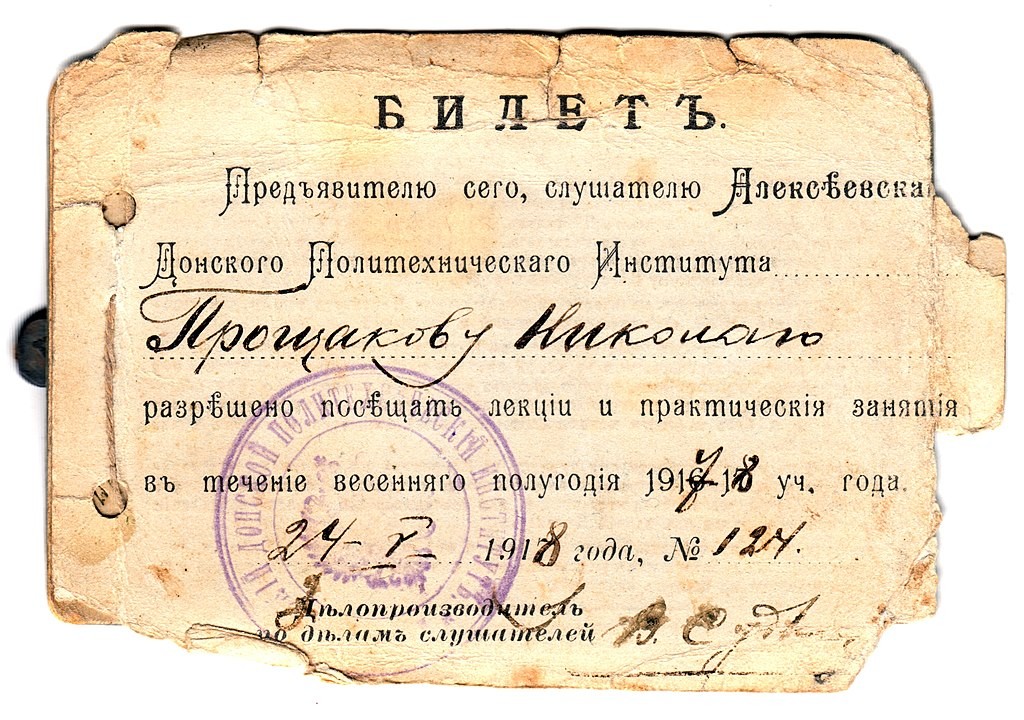 БИЛЕТЪ.
Предъявителю сего, слушателю Алексѣевска
Донского Политехническаго Института
Прощакову Николаю
разрѣшено посѣщать лекціи и практическія занятія
въ теченіе весенняго полугодія 1917-18 уч. года.
24 V 1918 года, № 124.
Дѣлопроизводитель
по дѣламъ слушателей
ДОНСКОЙ ПОЛИТЕХНИЧЕСКІЙ ИНСТИТУТЪ